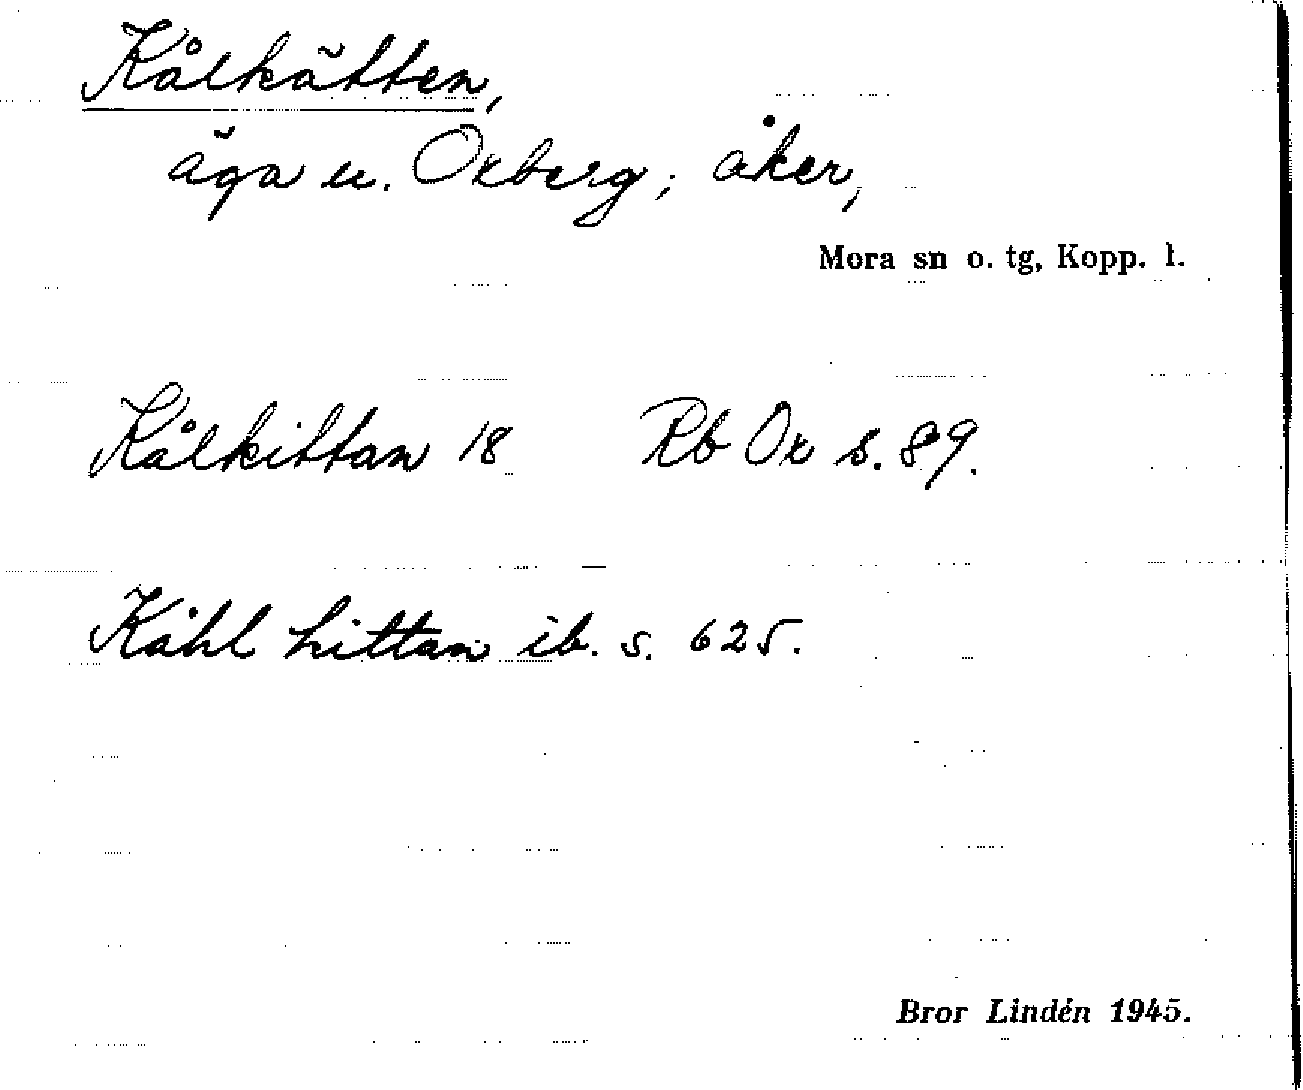 Kålkätten,
äga u. Oxberg; åker,
Mora sn o. tg, Kopp. l.
Kålkittan 18 Rb Ox s. 89.
Kåhl hittan ib. s. 625.
Bror Lindén 1945.